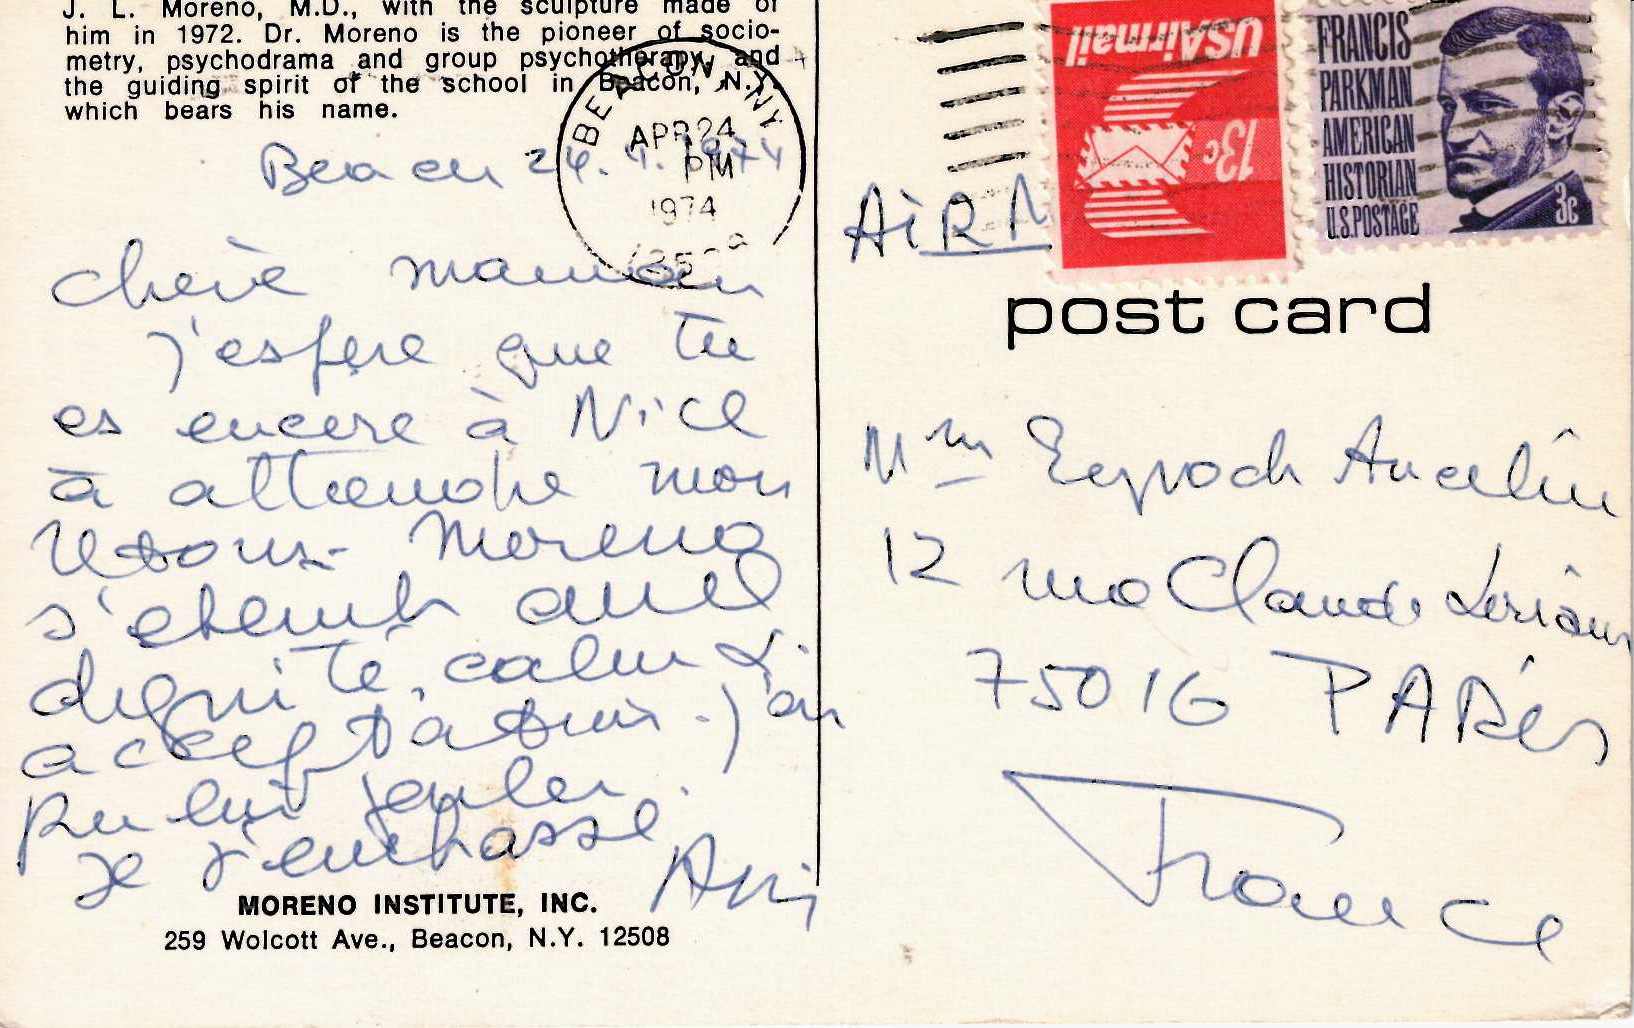 J. L. Moreno, M.D., with the sculpture made of
him in 1972. Dr. Moreno is the pioneer of socio-
metry, psychodrama and group psychotherapy, and
the guiding spirit of the school in Beacon, N.Y.
which bears his name.
BEACON, NY
APR 24
PM
1974
Beacon 24. 4. 1974
chère maman
j'espère que tu
es encore à Nice
à attendre mon
retour. Moreno
s'éteint avec
dignité, calme &
acceptation. J'ai
pu lui parler.
Je t'embrasse.
MORENO INSTITUTE, INC.
259 Wolcott Ave., Beacon, N.Y. 12508
USAirmail
13c
FRANCIS
PARKMAN
AMERICAN
HISTORIAN
U.S.POSTAGE
3c
AiRM
post card
Mme Ancelin
12 rue Claude Lorrain
75016 PARis
France